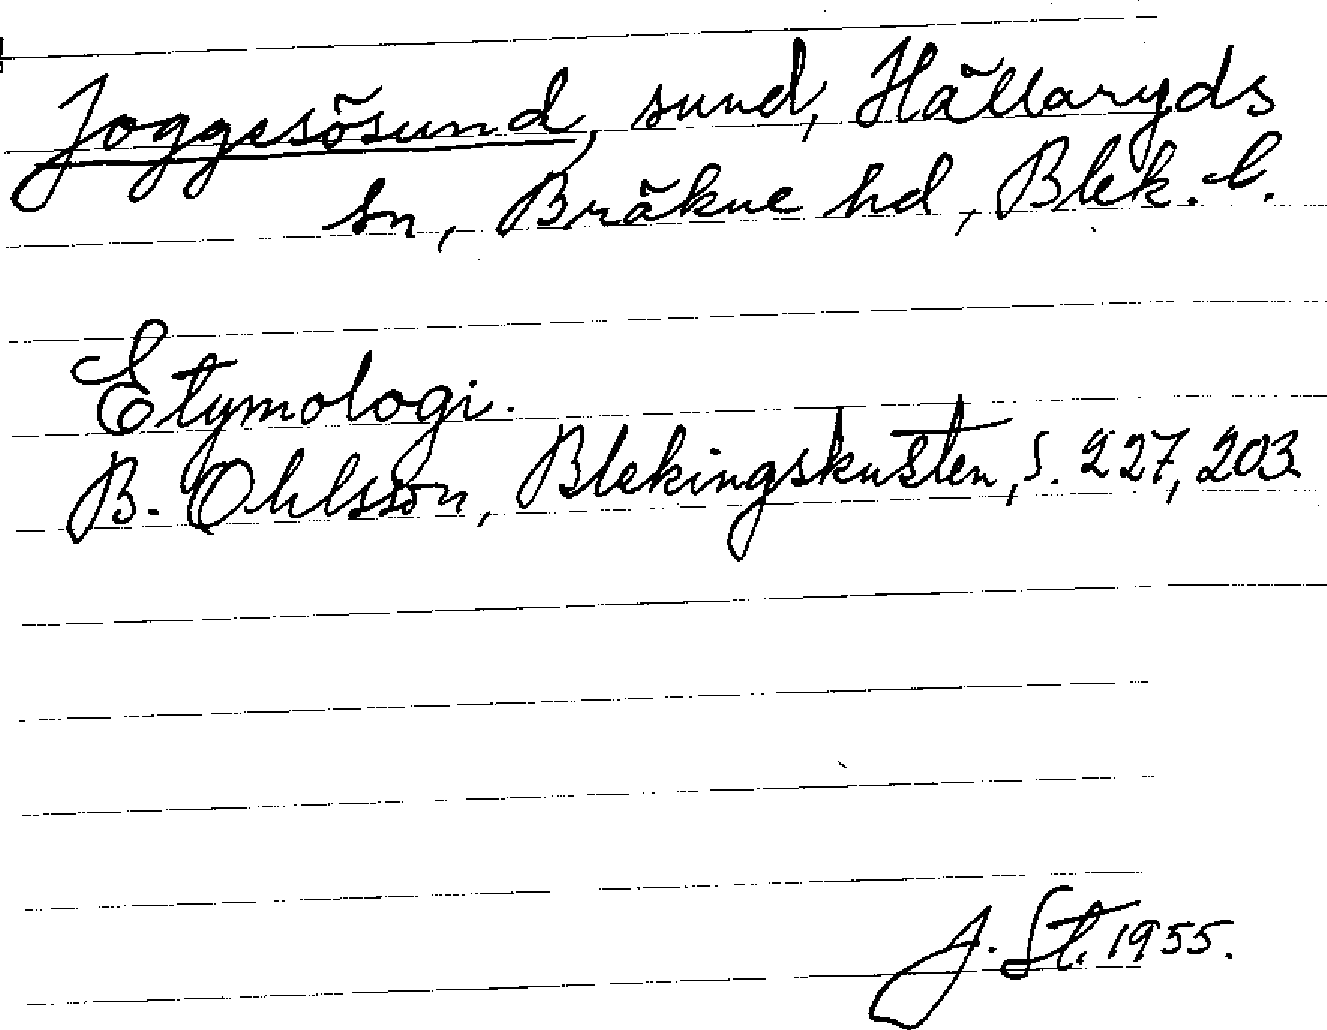 Joggesösund, sund, Hällaryds
sn, Bräkne hd, Blek. l.
Etymologi.
B. Ohlsson, Blekingskusten, s. 227, 203
J. St. 1955.